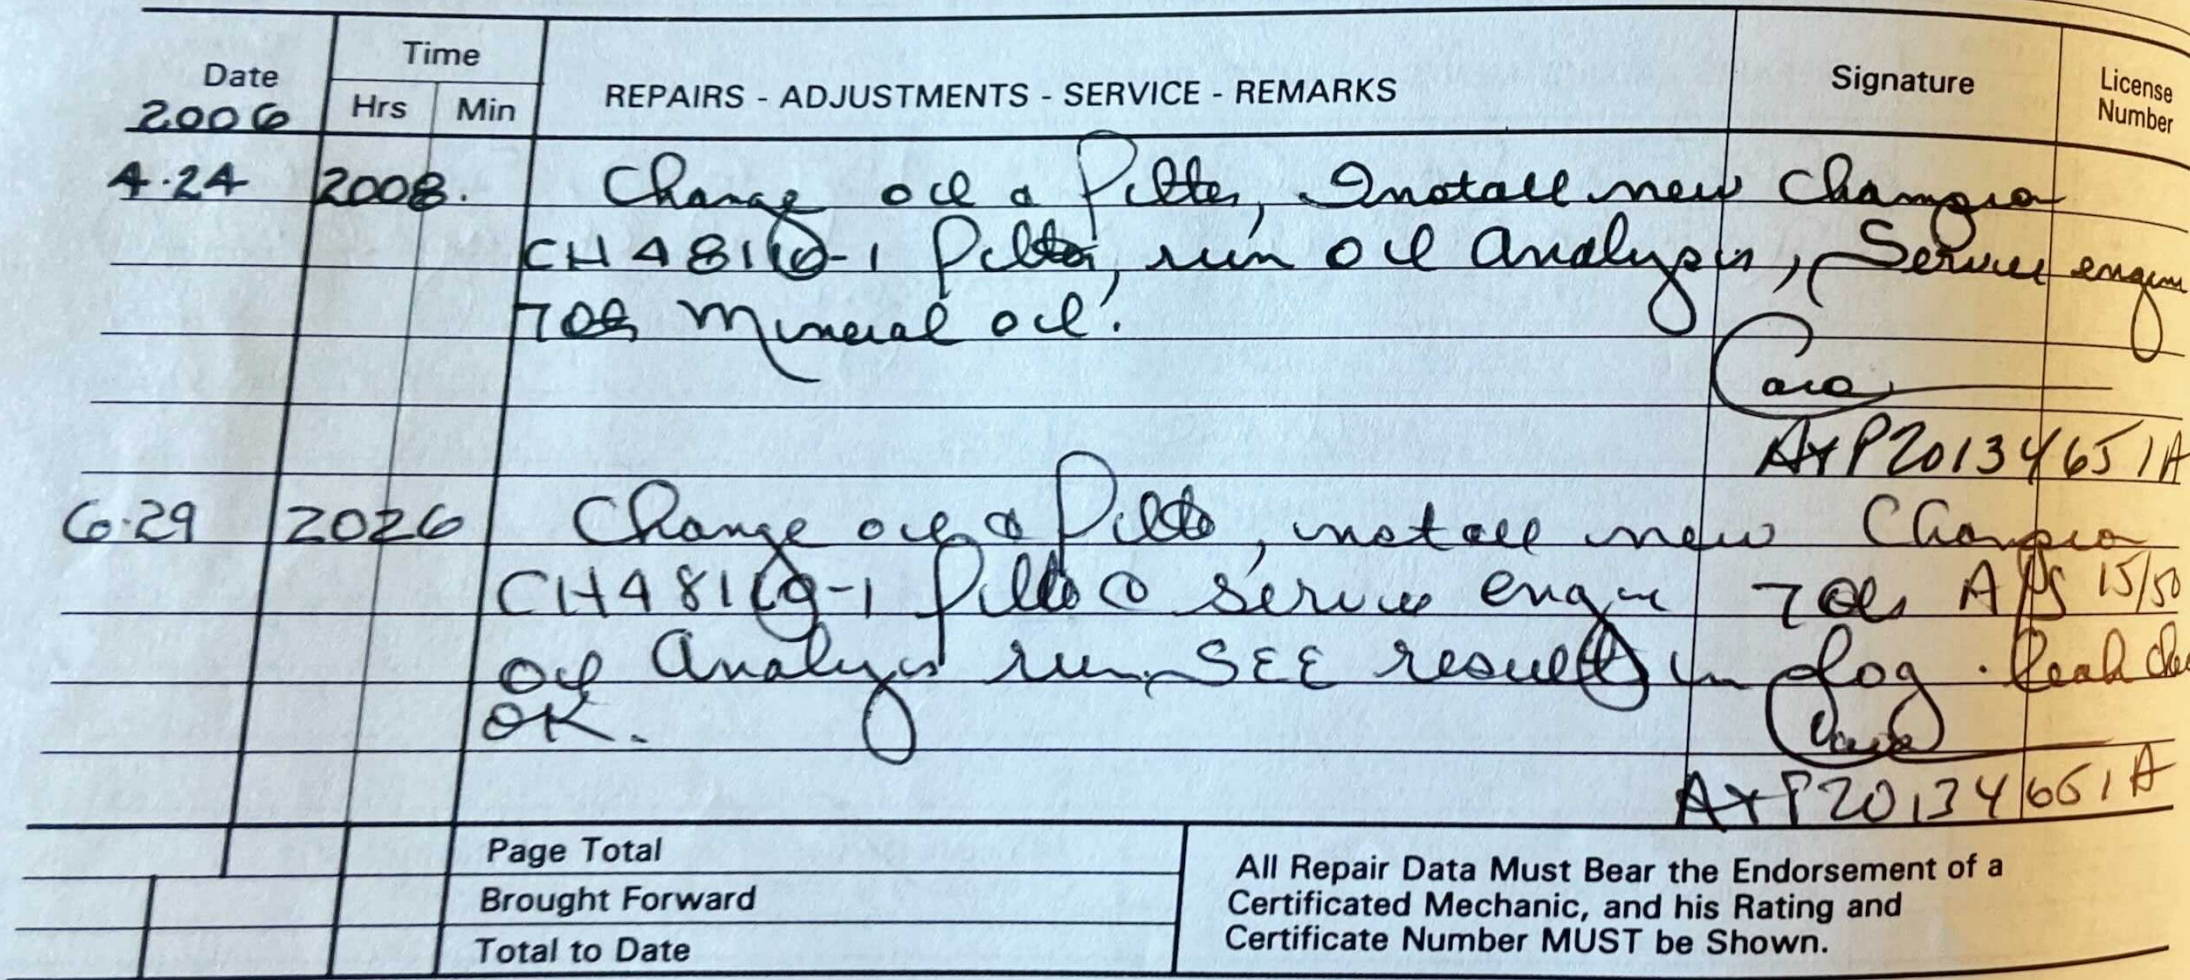 Date
Time
REPAIRS - ADJUSTMENTS - SERVICE - REMARKS
Signature
License
Number
2006
Hrs
Min
4·24 2008. Change oil & filter, Install new Champion
CH48110-1 filter, run oil analysis, Service engine
7 qts mineral oil.
A+P 20134651A
6·29 2026 Change oil & filter, install new Champion
CH48110-1 filter service engine 7 qts 15/50
oil analysis run. SEE results in log. leak
OK.
A+P 20134651A
Page Total
Brought Forward
Total to Date
All Repair Data Must Bear the Endorsement of a
Certificated Mechanic, and his Rating and
Certificate Number MUST be Shown.